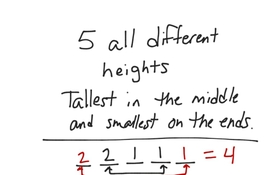 5 all different
heights
Tallest in the middle
and smallest on the ends.
2 2 1 1 1 = 4